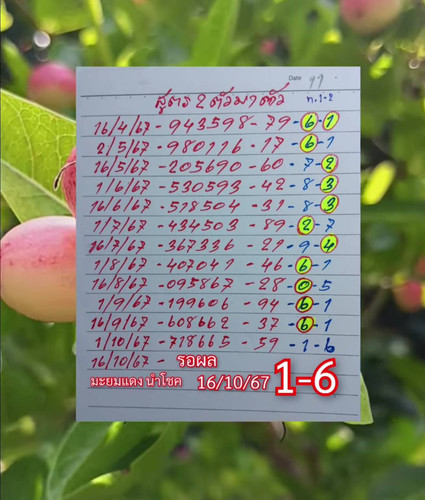 Date 99
สูตร 2 ตัวมาตัว ท.1-2
16/4/67-943598-79-6-1
2/5/67-980116-17-6-1
16/5/67-205690-60-7-2
1/6/67-530593-42-8-3
16/6/67-518504-31-8-3
1/7/67-434503-89-2-7
16/7/67-367336-21-9-4
1/8/67-407041-46-6-1
16/8/67-095867-28-0-5
1/9/67-199606-94-6-1
16/9/67-608662-37-6-1
1/10/67-718665-59-1-6
16/10/67- รอผล
มะยมแดง นำโชค 16/10/67 1-6